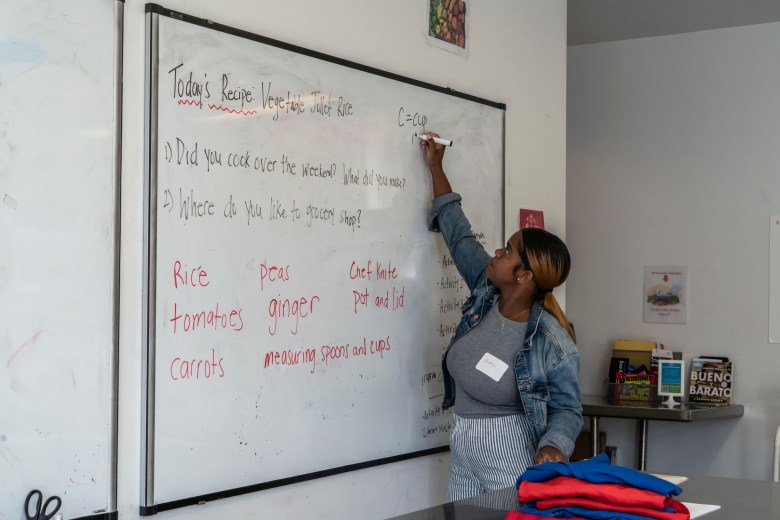 Today's Recipe: Vegetable Jollet Rice
C = cup
1) Did you cook over the weekend? What did you make?
2) Where do you like to grocery shop?
Rice peas Chef Knife
tomatoes ginger pot and lid
carrots measuring spoons and cups
-Activity
-Activity
-Activity
BUENO
BARATO